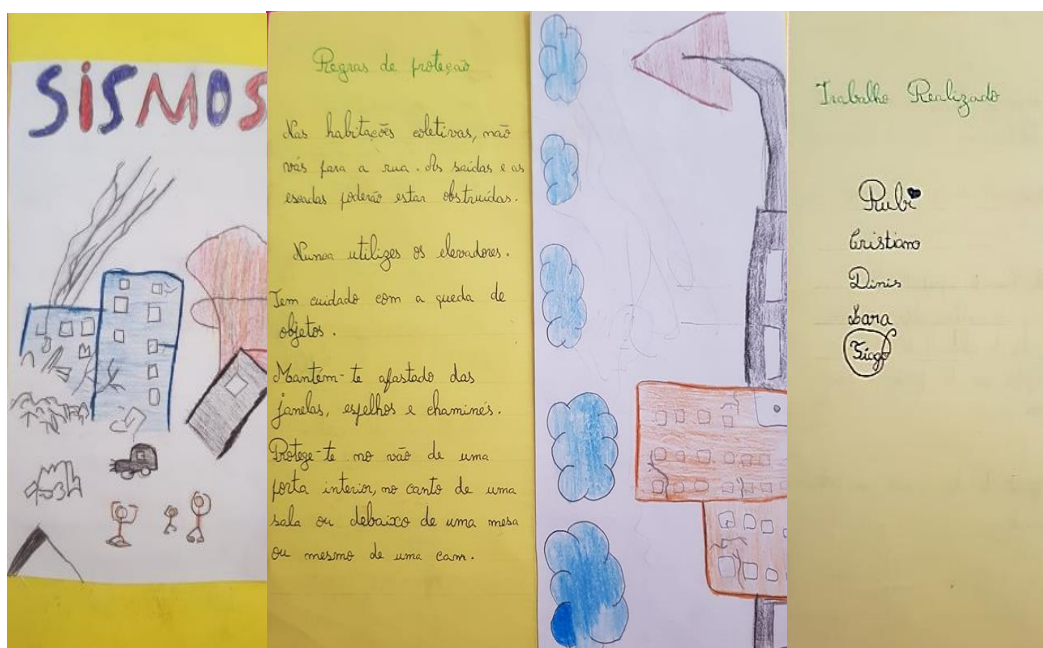 SiSMOS
Regras de proteção
Nas habitações coletivas, não
vás para a rua. As saídas e as
escadas poderão estar obstruídas.
Nunca utilizes os elevadores.
Tem cuidado com a queda de
objetos.
Mantém-te afastado das
janelas, espelhos e chaminés.
Protege-te no vão de uma
porta interior, no canto de uma
sala ou debaixo de uma mesa
ou mesmo de uma cam.
Trabalho Realizado
Rubi
Cristiano
Dinis
Sara
Tiago